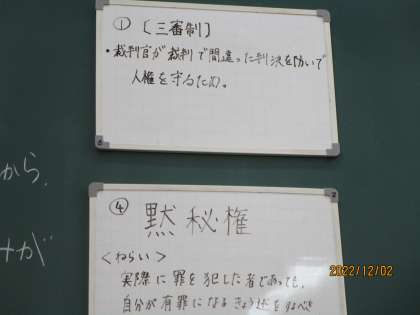 ① 〔三審制〕
・裁判官が裁判で間違った判決を防いで
人権を守るため。
から.
が
④ 黙秘権
<ねらい>
実際に罪を犯した者であっても、
自分が有罪になるきょう述をするべき
2022/12/02